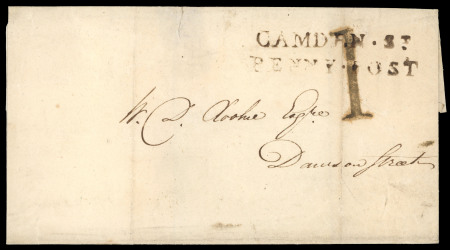 CAMDEN·ST
PENNY·POST
1
W. D. Esqre.
Dawson Street